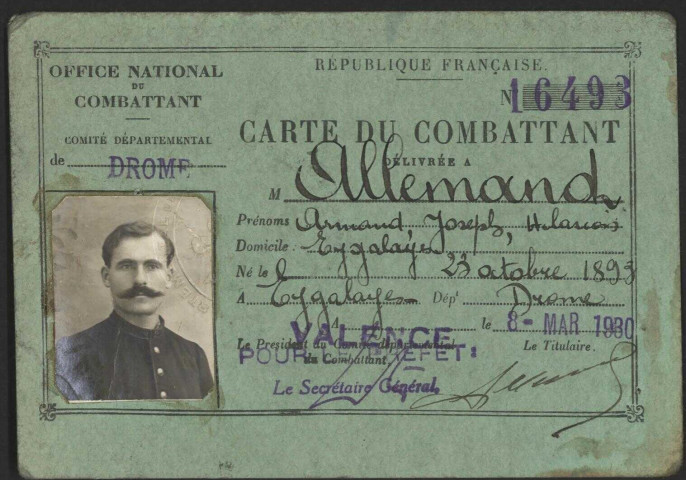 OFFICE NATIONAL
DU
COMBATTANT
COMITÉ DÉPARTEMENTAL
de DROME
RÉPUBLIQUE FRANÇAISE.
N 16493
CARTE DU COMBATTANT
DÉLIVRÉE A
M Allemand
Prénoms Armand, Joseph,
Domicile : Eygalayes
Né le 23 octobre 1893
A Eygalayes Dépt Drome
A VALENCE le 8 - MAR 1930
Le Président du Comité départemental
du Combattant,
POUR LE PREFET :
Le Titulaire.
Le Secrétaire Général,